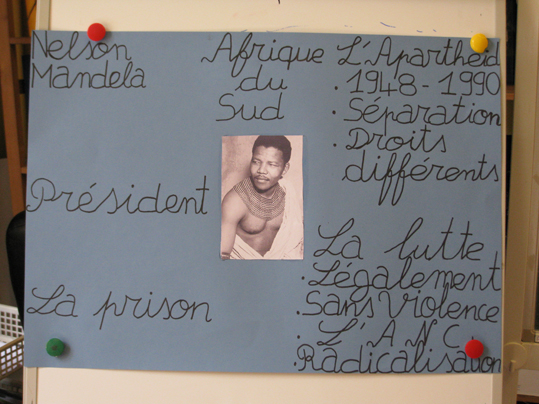 Nelson
Mandela
Afrique
du
Sud
L'Apartheid
. 1948-1990
. Séparation
. Droits
différents
Président
La prison
La lutte
. Légalement
. Sans Violence
. L'ANC
. Radicalisation